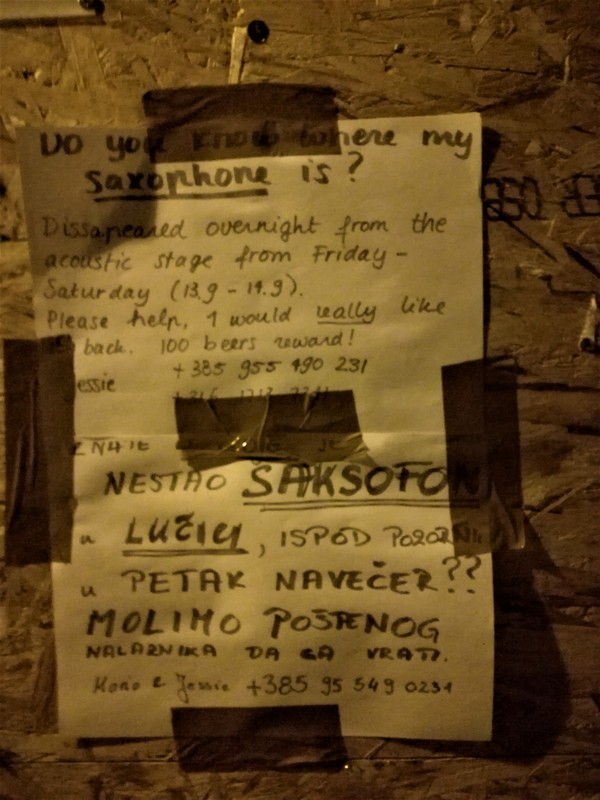 Do you know where my
saxophone is?
Dissapeared overnight from the
acoustic stage from Friday -
Saturday (13.9 - 14.9).
Please help, I would really like
back. 100 beers reward!
+385 955 490 231
essie
NESTAO SAKSOFON
u LUŽICI, ISPOD POZORNI
u PETAK NAVEČER??
MOLIMO POŠTENOG
NALAZNIKA DA GA VRATI.
& Jessie +385 95 549 0231